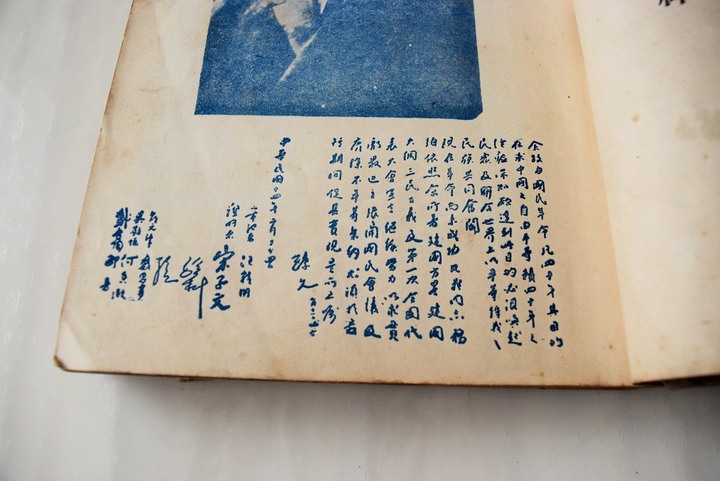 余致力國民革命凡四十年其目的
在求中國之自由平等積四十年之
經驗深知欲達到此目的必須喚起
民衆及聯合世界上以平等待我之
民族共同奮鬥
現在革命尚未成功凡我同志務
須依照余所著建國方略建國
大綱三民主義及第一次全國代
表大會宣言繼續努力以求貫
澈最近主張開國民會議及
廢除不平等條約尤須於最
短期間促其實現是所至囑
孫文
中華民國十四年二月廿四日
筆記者 汪精衛
證明者 宋子文
孫科
邵元冲 戴恩賽
吳敬恆 何香凝
戴季陶 鄒魯